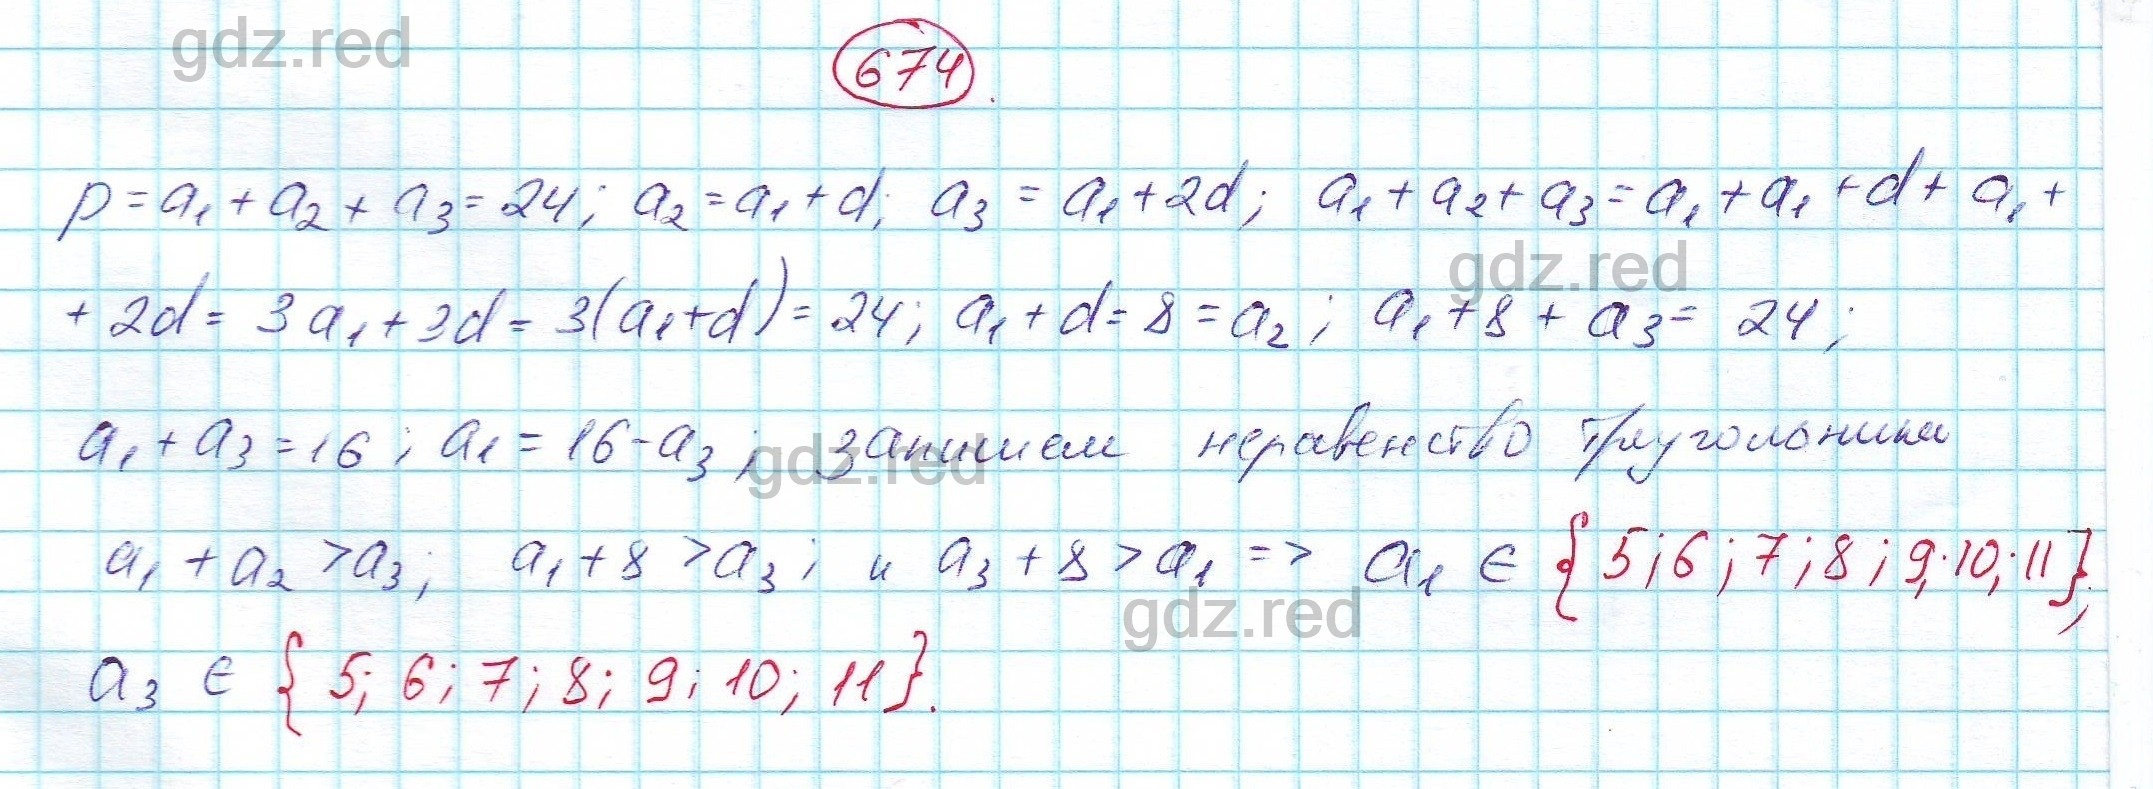 gdz.red
674
p = a₁ + a₂ + a₃ = 24; a₂ = a₁ + d; a₃ = a₁ + 2d; a₁ + a₂ + a₃ = a₁ + a₁ + d + a₁ +
gdz.red
+ 2d = 3a₁ + 3d = 3(a₁ + d) = 24; a₁ + d = 8 = a₂; a₁ + 8 + a₃ = 24;
a₁ + a₃ = 16; a₁ = 16 - a₃; запишем неравенство треугольника
gdz.red
a₁ + a₂ > a₃; a₁ + 8 > a₃; и a₃ + 8 > a₁ => a₁ ∈ {5; 6; 7; 8; 9; 10; 11};
gdz.red
a₃ ∈ {5; 6; 7; 8; 9; 10; 11}.